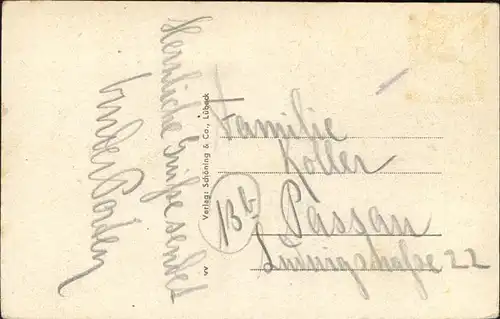 Herzliche Grüße sendet
Verlag: Schöning & Co., Lübeck
vv
13b
Familie
Koller
Passau
Ludwigstraße 22